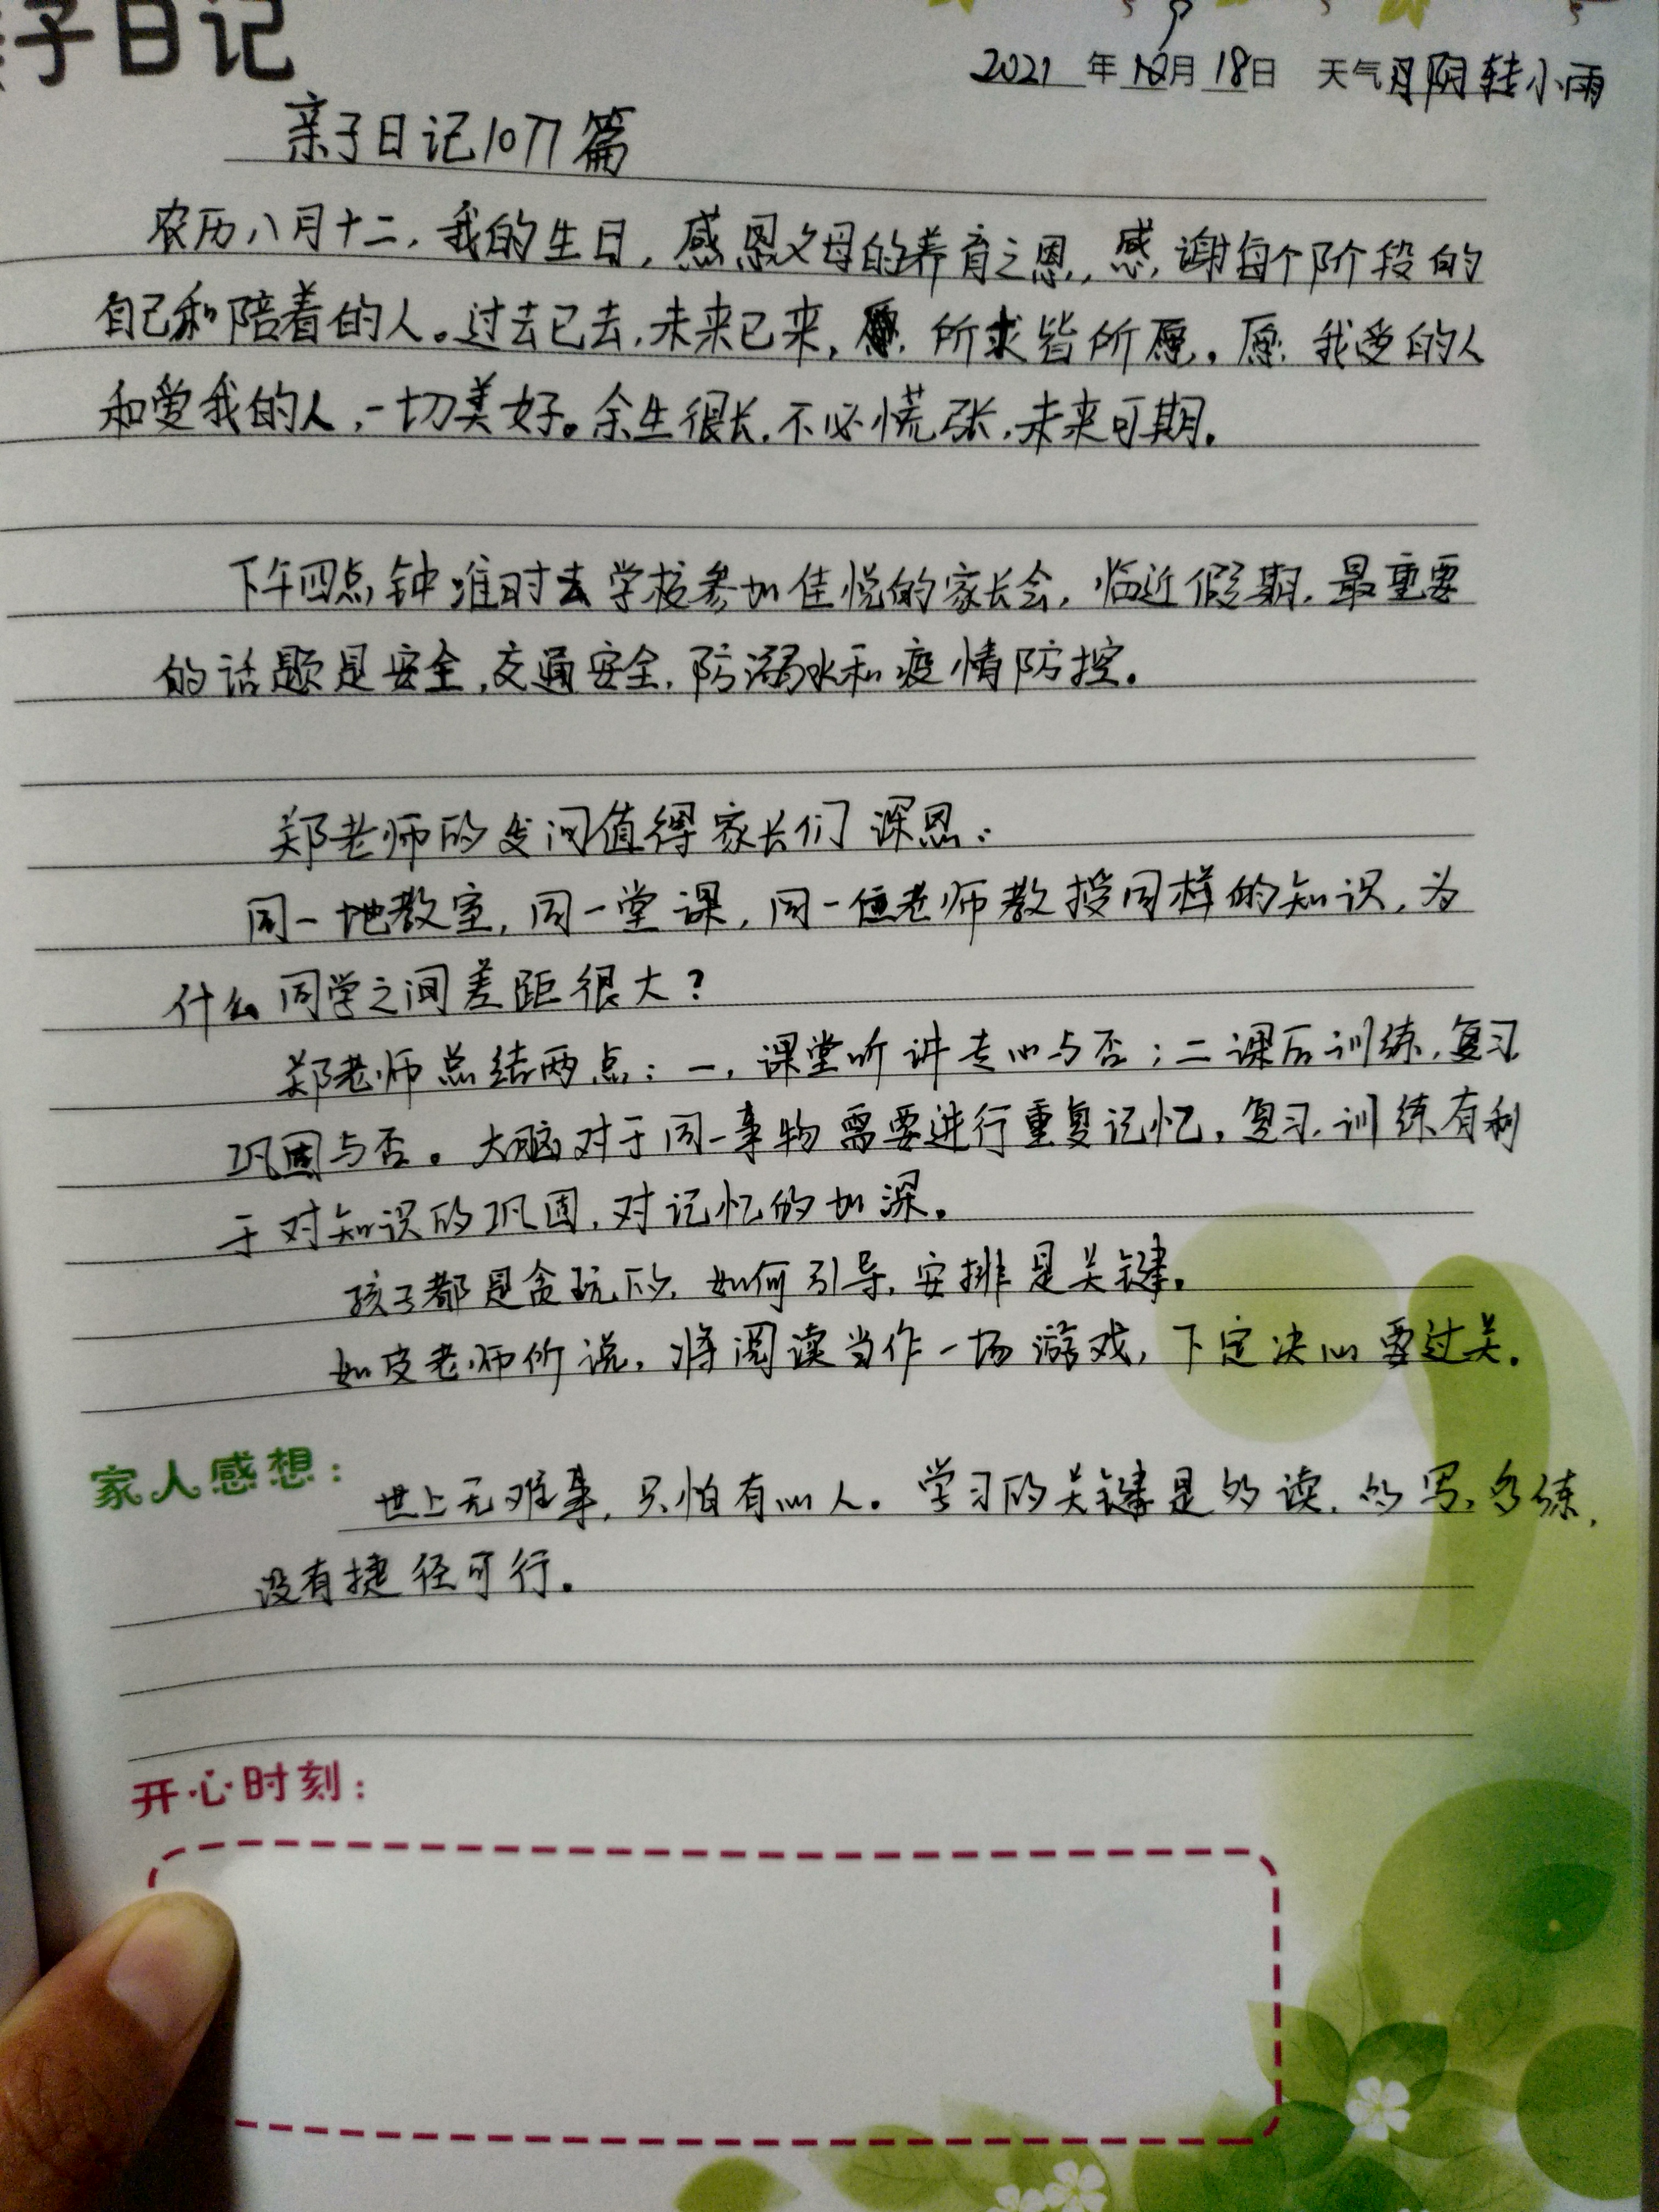 子日记
2021年9月18日 天气阴转小雨
亲子日记1077篇
农历八月十二,我的生日,感恩父母的养育之恩,感谢每个阶段的
自己和陪着的人。过去已去,未来已来,愿所求皆所愿。愿我爱的人
和爱我的人,一切美好。余生很长,不必慌张,未来可期。
下午四点钟准时去学校参加佳悦的家长会,临近假期,最重要
的话题是安全,交通安全,防溺水和疫情防控。
郑老师的发问值得家长们深思:
同一地教室,同一堂课,同一位老师教授同样的知识,为
什么同学之间差距很大?
郑老师总结两点:一,课堂听讲专心与否;二课后训练,复习
巩固与否。大脑对于同一事物需要进行重复记忆,复习,训练有利
于对知识的巩固,对记忆的加深。
孩子都是贪玩的,如何引导,安排是关键。
如皮老师所说,将阅读当作一场游戏,下定决心要过关。
家人感想:世上无难事,只怕有心人。学习的关键是多读,的写,多练,
没有捷径可行。
开心时刻: